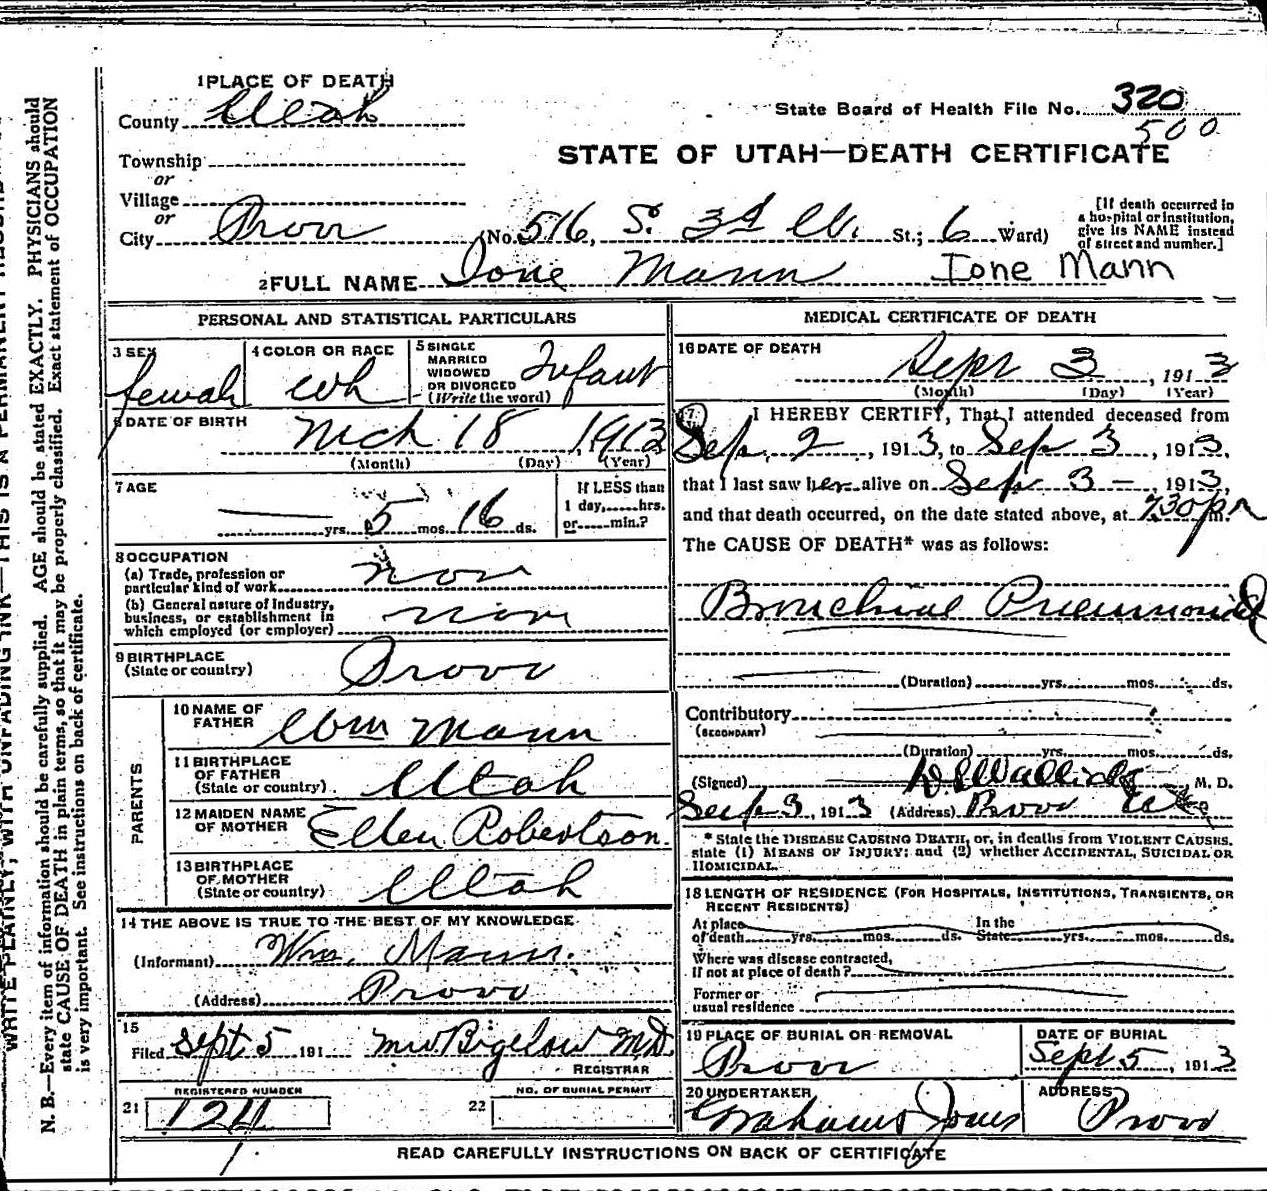 1 PLACE OF DEATH
County Utah
State Board of Health File No. 320
500
Township
or
Village
or
City Provo
STATE OF UTAH—DEATH CERTIFICATE
(No. 516, S. 3d W. St.; 6 Ward)
[If death occurred in
a hospital or institution,
give its NAME instead
of street and number.]
2 FULL NAME Ione Mann Ione Mann
PERSONAL AND STATISTICAL PARTICULARS
3 SEX female
4 COLOR OR RACE Wh
5 SINGLE
MARRIED
WIDOWED
OR DIVORCED
(Write the word) Infant
6 DATE OF BIRTH
Mch 18, 1913
(Month) (Day) (Year)
7 AGE
yrs. 5 mos. 16 ds.
If LESS than
1 day, hrs.
or min.?
8 OCCUPATION
(a) Trade, profession or
particular kind of work non
(b) General nature of Industry,
business, or establishment in
which employed (or employer) non
9 BIRTHPLACE
(State or country) Provo
PARENTS
10 NAME OF
FATHER Wm Mann
11 BIRTHPLACE
OF FATHER
(State or country) Utah
12 MAIDEN NAME
OF MOTHER Ellen Robertson.
13 BIRTHPLACE
OF MOTHER
(State or country) Utah
14 THE ABOVE IS TRUE TO THE BEST OF MY KNOWLEDGE
(Informant) Wm. Mann.
(Address) Provo
15
Filed Sept 5 191 MW Bigelow MD.
REGISTRAR
REGISTERED NUMBER
21 124
NO. OF BURIAL PERMIT
22
MEDICAL CERTIFICATE OF DEATH
16 DATE OF DEATH
Sept 3, 1913
(Month) (Day) (Year)
17 I HEREBY CERTIFY, That I attended deceased from
Sep 2, 1913, to Sep 3, 1913,
that I last saw her alive on Sep 3 -, 1913,
and that death occurred, on the date stated above, at 730 p m.
The CAUSE OF DEATH* was as follows:
Bronchial Pneumonia
(Duration) yrs. mos. ds.
Contributory
(SECONDARY)
(Duration) yrs. mos. ds.
(Signed) M. D.
Sep 3, 1913 (Address) Provo
* State the DISEASE CAUSING DEATH, or, in deaths from VIOLENT CAUSES,
state (1) MEANS OF INJURY; and (2) whether ACCIDENTAL, SUICIDAL OR
HOMICIDAL.
18 LENGTH OF RESIDENCE (FOR HOSPITALS, INSTITUTIONS, TRANSIENTS, OR
RECENT RESIDENTS)
At place
of death yrs. mos. ds.
In the
State yrs. mos. ds.
Where was disease contracted,
if not at place of death?
Former or
usual residence
19 PLACE OF BURIAL OR REMOVAL
Provo
DATE OF BURIAL
Sept 5, 1913
20 UNDERTAKER
Graham Jones
ADDRESS
Provo
READ CAREFULLY INSTRUCTIONS ON BACK OF CERTIFICATE
WRITE PLAINLY, WITH UNFADING INK—THIS IS A PERMANENT RECORD
N. B.—Every item of information should be carefully supplied. AGE should be stated EXACTLY. PHYSICIANS should
state CAUSE OF DEATH in plain terms, so that it may be properly classified. Exact statement of OCCUPATION
is very important. See instructions on back of certificate.